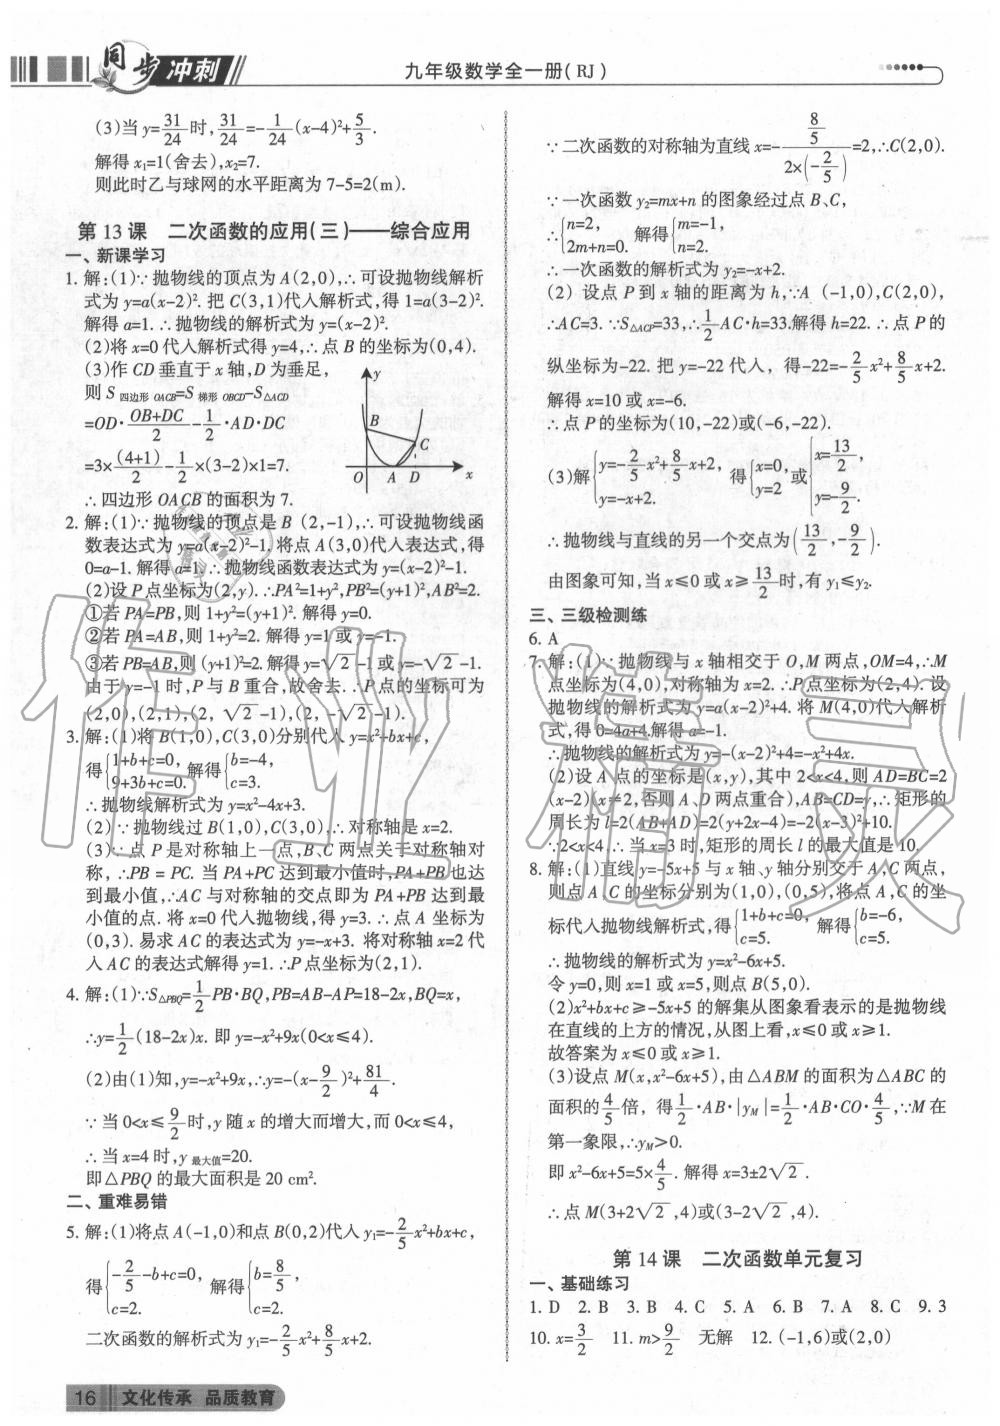 同步冲刺
九年级数学全一册(RJ)
(3)当y=31/24时,31/24=-1/24(x-4)²+5/3.
解得x₁=1(舍去),x₂=7.
则此时乙与球网的水平距离为7-5=2(m).
第13课 二次函数的应用(三)——综合应用
一、新课学习
1. 解:(1)∵抛物线的顶点为A(2,0),∴可设抛物线解析
式为y=a(x-2)². 把C(3,1)代入解析式,得1=a(3-2)².
解得a=1. ∴抛物线的解析式为y=(x-2)².
(2)将x=0代入解析式得y=4,∴点B的坐标为(0,4).
(3)作CD垂直于x轴,D为垂足,
则S四边形OACB=S梯形OBCD-S△ACD
=OD·(OB+DC)/2-1/2·AD·DC
=3×(4+1)/2-1/2×(3-2)×1=7.
∴四边形OACB的面积为7.
y
B
C
O A D x
2. 解:(1)∵抛物线的顶点是B(2,-1),∴可设抛物线函
数表达式为y=a(x-2)²-1. 将点A(3,0)代入表达式,得
0=a-1. 解得a=1. ∴抛物线函数表达式为y=(x-2)²-1.
(2)设P点坐标为(2,y). ∴PA²=1+y²,PB²=(y+1)²,AB²=2.
①若PA=PB,则1+y²=(y+1)². 解得y=0.
②若PA=AB,则1+y²=2. 解得y=1或y=-1.
③若PB=AB,则(y+1)²=2. 解得y=√2-1或y=-√2-1.
由于y=-1时,P与B重合,故舍去. ∴P点的坐标可为
(2,0),(2,1),(2,√2-1),(2,-√2-1).
3. 解:(1)将B(1,0),C(3,0)分别代入y=x²+bx+c,
得{1+b+c=0, 9+3b+c=0. 解得{b=-4, c=3.
∴抛物线解析式为y=x²-4x+3.
(2)∵抛物线过B(1,0),C(3,0),∴对称轴是x=2.
(3)∵点P是对称轴上一点,B、C两点关于对称轴对
称,∴PB=PC. 当PA+PC达到最小值时,PA+PB也达
到最小值,∴AC与对称轴的交点即为PA+PB达到最
小值的点. 将x=0代入抛物线,得y=3. ∴点A坐标为
(0,3). 易求AC的表达式为y=-x+3. 将对称轴x=2代
入AC的表达式解得y=1. ∴P点坐标为(2,1).
4. 解:(1)∵S△PBQ=1/2PB·BQ,PB=AB-AP=18-2x,BQ=x,
∴y=1/2(18-2x)x. 即y=-x²+9x(0<x≤4).
(2)由(1)知,y=-x²+9x,∴y=-(x-9/2)²+81/4.
∵当0<x≤9/2时,y随x的增大而增大,而0<x≤4,
∴当x=4时,y最大值=20.
即△PBQ的最大面积是20 cm².
二、重难易错
5. 解:(1)将点A(-1,0)和点B(0,2)代入y₁=-2/5x²+bx+c,
得{-2/5-b+c=0, c=2. 解得{b=8/5, c=2.
二次函数的解析式为y₁=-2/5x²+8/5x+2.
∵二次函数的对称轴为直线x=-(8/5)/(2×(-2/5))=2,∴C(2,0).
∵一次函数y₂=mx+n的图象经过点B、C,
∴{n=2, 2m+n=0. 解得{m=-1, n=2.
∴一次函数的解析式为y₂=-x+2.
(2)设点P到x轴的距离为h,∵A(-1,0),C(2,0),
∴AC=3. ∵S△ACP=33,∴1/2AC·h=33.解得h=22. ∴点P的
纵坐标为-22. 把y=-22代入,得-22=-2/5x²+8/5x+2.
解得x=10或x=-6.
∴点P的坐标为(10,-22)或(-6,-22).
(3)解{y=-2/5x²+8/5x+2, y=-x+2. 得{x=0, y=2 或{x=13/2, y=-9/2.
∴抛物线与直线的另一个交点为(13/2,-9/2).
由图象可知,当x≤0或x≥13/2时,有y₁≤y₂.
三、三级检测练
6. A
7. 解:(1)∵抛物线与x轴相交于O,M两点,OM=4,∴M
点坐标为(4,0),对称轴为x=2. ∴P点坐标为(2,4). 设
抛物线的解析式为y=a(x-2)²+4. 将M(4,0)代入解析
式,得0=4a+4.解得a=-1.
∴抛物线的解析式为y=-(x-2)²+4=-x²+4x.
(2)设A点的坐标是(x,y),其中2<x<4,则AD=BC=2
(x-2)(x≠2,否则A、D两点重合),AB=CD=y,∴矩形的
周长为l=2(AB+AD)=2(y+2x-4)=-2(x-3)²+10.
∵2<x<4,∴当x=3时,矩形的周长l的最大值是10.
8. 解:(1)直线y=-5x+5与x轴、y轴分别交于A,C两点,
则点A、C的坐标分别为(1,0),(0,5),将点A、C的坐
标代入抛物线解析式,得{1+b+c=0, c=5. 解得{b=-6, c=5.
∴抛物线的解析式为y=x²-6x+5.
令y=0,则x=1或x=5,则点B(5,0).
(2)x²+bx+c≥-5x+5的解集从图象看表示的是抛物线
在直线的上方的情况,从图上看,x≤0或x≥1.
故答案为x≤0或x≥1.
(3)设点M(x,x²-6x+5),由△ABM的面积为△ABC的
面积的4/5倍,得1/2·AB·|yM|=1/2·AB·CO·4/5,∵M在
第一象限,∴yM>0.
即x²-6x+5=5×4/5. 解得x=3±2√2.
∴点M(3+2√2,4)或(3-2√2,4).
第14课 二次函数单元复习
一、基础练习
1. D 2. B 3. B 4. C 5. A 6. B 7. A 8. C 9. 3
10. x=3/2 11. m>9/2 无解 12. (-1,6)或(2,0)
16 文化传承 品质教育
作业精灵